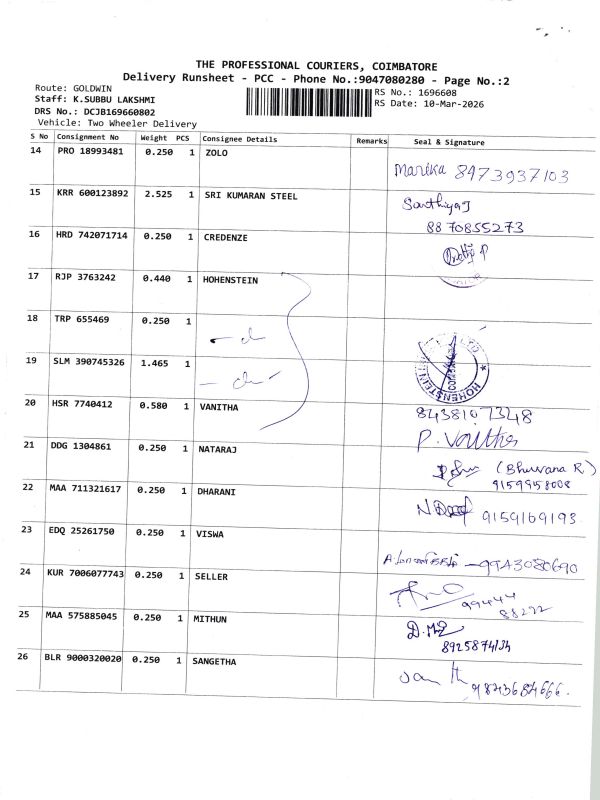 THE PROFESSIONAL COURIERS, COIMBATORE
Delivery Runsheet - PCC - Phone No.:9047080280 - Page No.:2
Route: GOLDWIN
RS No.: 1696608
Staff: K.SUBBU LAKSHMI
RS Date: 10-Mar-2026
DRS No.: DCJB169660802
Vehicle: Two Wheeler Delivery
S No Consignment No Weight PCS Consignee Details Remarks Seal & Signature
14 PRO 18993481 0.250 1 ZOLO
Marika 8473937103
15 KRR 600123892 2.525 1 SRI KUMARAN STEEL
Santhiya J
8870855273
16 HRD 742071714 0.250 1 CREDENZE
17 RJP 3763242 0.440 1 HOHENSTEIN
18 TRP 655469 0.250 1
19 SLM 390745326 1.465 1
HOHENSTEIN
20 HSR 7740412 0.580 1 VANITHA
8438107348
P. Vanitha
21 DDG 1304861 0.250 1 NATARAJ
(Bhuvana R)
9159958008
22 MAA 711321617 0.250 1 DHARANI
9159169193
23 EDQ 25261750 0.250 1 VISWA
9943080690
24 KUR 7006077743 0.250 1 SELLER
99444
88222
25 MAA 575885045 0.250 1 MITHUN
8925874134
26 BLR 9000320020 0.250 1 SANGETHA
9843684666.